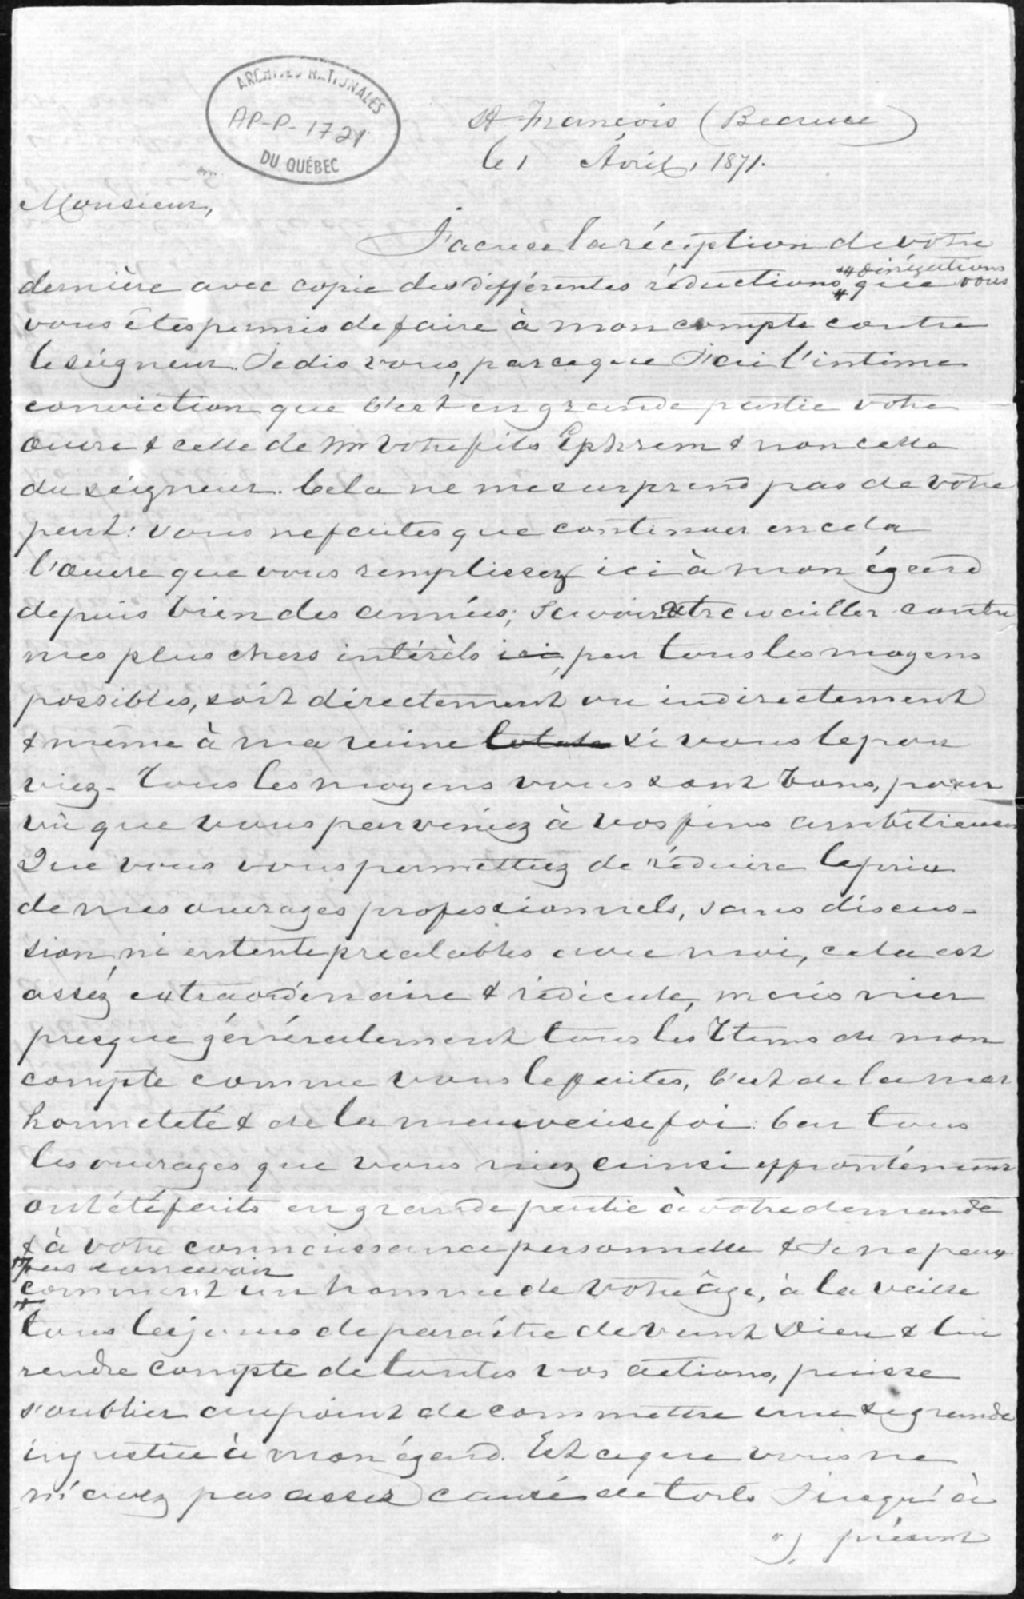 ARCHIVES NATIONALES
AP-P-1721
DU QUÉBEC
St François (Beauce)
le 1 Avril, 1871.
Monsieur,
J'accuse la réception de votre
dernière avec copie des différentes réductions & dénégations que vous
vous êtes permis de faire à mon compte contre
le seigneur. Je dis vous, parceque J'ai l'intime
conviction que c'est en grande partie votre
œuvre & celle de Mr votre fils Ephrem & non celle
du seigneur. Cela ne me surprend pas de votre
part: vous ne faites que continuer en cela
l'œuvre que vous remplissez ici à mon égard
depuis bien des années; savoir de travailler contre
mes plus chers intérêts ici, par tous les moyens
possibles, soit directement ou indirectement
& même à ma ruine totale si vous le pou
viez. Tous les moyens vous sont bons, pour
vû que vous parveniez à vos fins ambitieuses
Que vous vous permettiez de réduire le prix
de mes ouvrages professionnels, sans discus-
sion, ni entente préalables avec moi, cela est
assez extraordinaire & ridicule, mais nier
presque généralement tous les Items de mon
compte comme vous le faites, c'est de la mal
honnêteté & de la mauvaise foi. Car tous
les ouvrages que vous niez ainsi effrontément
ont été faits en grande partie à votre demande
& à votre connaissance personnelle & Je ne peux
pas concevoir
comment un homme de votre âge, à la veille
tous les jours de paraître devant Dieu & lui
rendre compte de toutes vos actions, puisse
s'oublier au point de commettre une si grande
injustice à mon égard. Est ce que vous ne
m'avez pas assez causé de torts Jusqu'à
présent